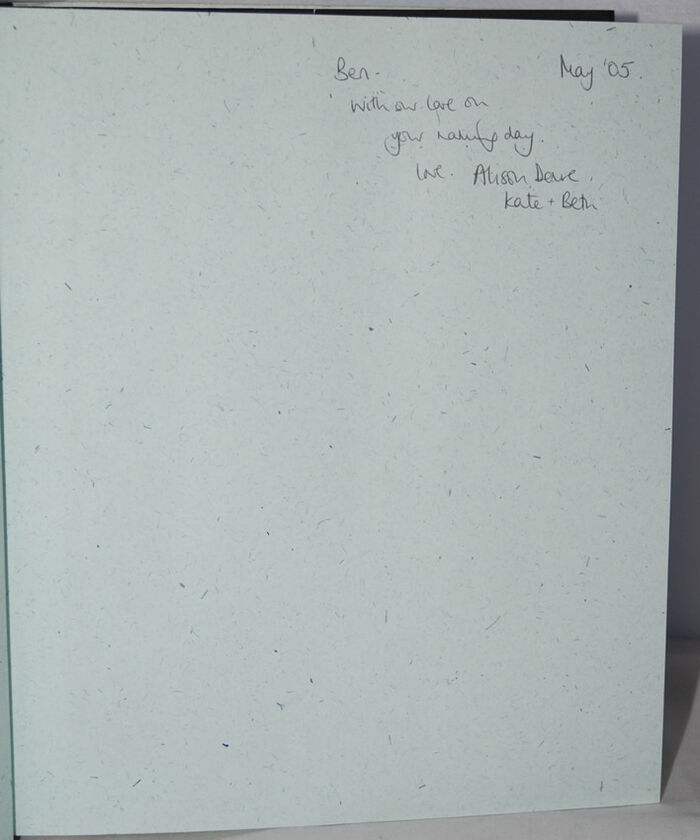 Ben. May '05.
With our love on
your naming day.
love. Alison, Dave,
Kate + Beth